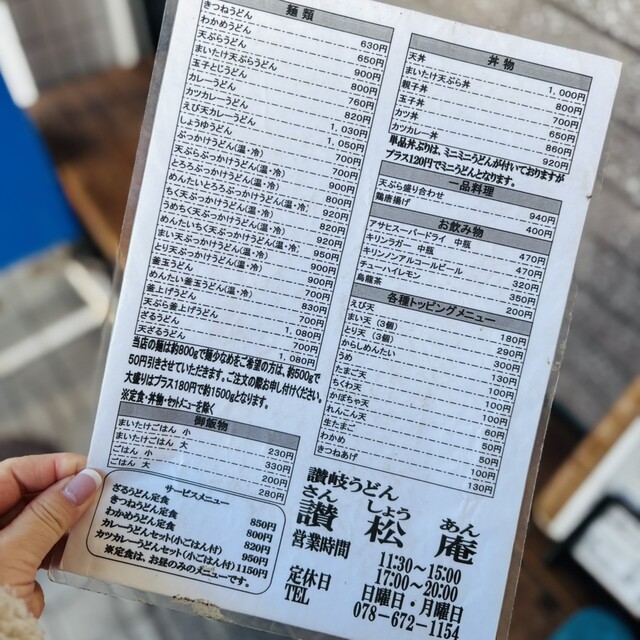 麺類
きつねうどん 630円
わかめうどん 650円
天ぷらうどん 900円
まいたけ天ぷらうどん 800円
玉子とじうどん 760円
カレーうどん 820円
カツカレーうどん 1,030円
えび天カレーうどん 1,050円
しょうゆうどん 700円
ぶっかけうどん(温・冷) 700円
天ぷらぶっかけうどん(温・冷) 900円
とろろぶっかけうどん(温・冷) 800円
めんたいとろろぶっかけうどん(温・冷) 920円
ちく天ぶっかけうどん(温・冷) 820円
うめちく天ぶっかけうどん(温・冷) 920円
めんたいちく天ぶっかけうどん(温・冷) 950円
まい天ぶっかけうどん(温・冷) 900円
とり天ぶっかけうどん(温・冷) 900円
釜玉うどん 700円
めんたい釜玉うどん 830円
釜上げうどん 700円
天ぷら釜上げうどん 1,080円
ざるうどん 700円
天ざるうどん 1,080円
当店の麺は約800gで麺少なめをご希望の方は、約500gで
50円引きさせていただきます。ご注文の際お申し付けください。
大盛りはプラス180円で約1500gとなります。
※定食・丼物・セットメニューを除く
御飯物
まいたけごはん 小 230円
まいたけごはん 大 330円
ごはん 小 200円
ごはん 大 280円
サービスメニュー
ざるうどん定食 850円
きつねうどん定食 800円
わかめうどん定食 820円
カレーうどんセット(小ごはん付) 950円
カツカレーうどんセット(小ごはん付) 1150円
※定食は、お昼のみのメニューです。
丼物
天丼 1,000円
まいたけ天ぷら丼 800円
親子丼 700円
玉子丼 650円
カツ丼 860円
カツカレー丼 920円
単品丼ぶりは、ミニミニうどんが付いておりますが
プラス120円でミニうどんとなります。
一品料理
天ぷら盛り合わせ 940円
鶏唐揚げ 400円
お飲み物
アサヒスーパードライ 中瓶 470円
キリンラガー 中瓶 470円
キリンノンアルコールビール 320円
チューハイレモン 350円
烏龍茶 200円
各種トッピングメニュー
えび天 180円
まい天(3個) 290円
とり天(3個) 300円
からしめんたい 130円
うめ 60円
たまご天 100円
ちくわ天 100円
かぼちゃ天 100円
れんこん天 100円
生たまご 50円
わかめ 100円
きつねあげ 130円
讃岐うどん
さん しょう あん
讃松庵
営業時間 11:30～15:00
17:00～20:00
定休日 日曜日・月曜日
TEL 078-672-1154